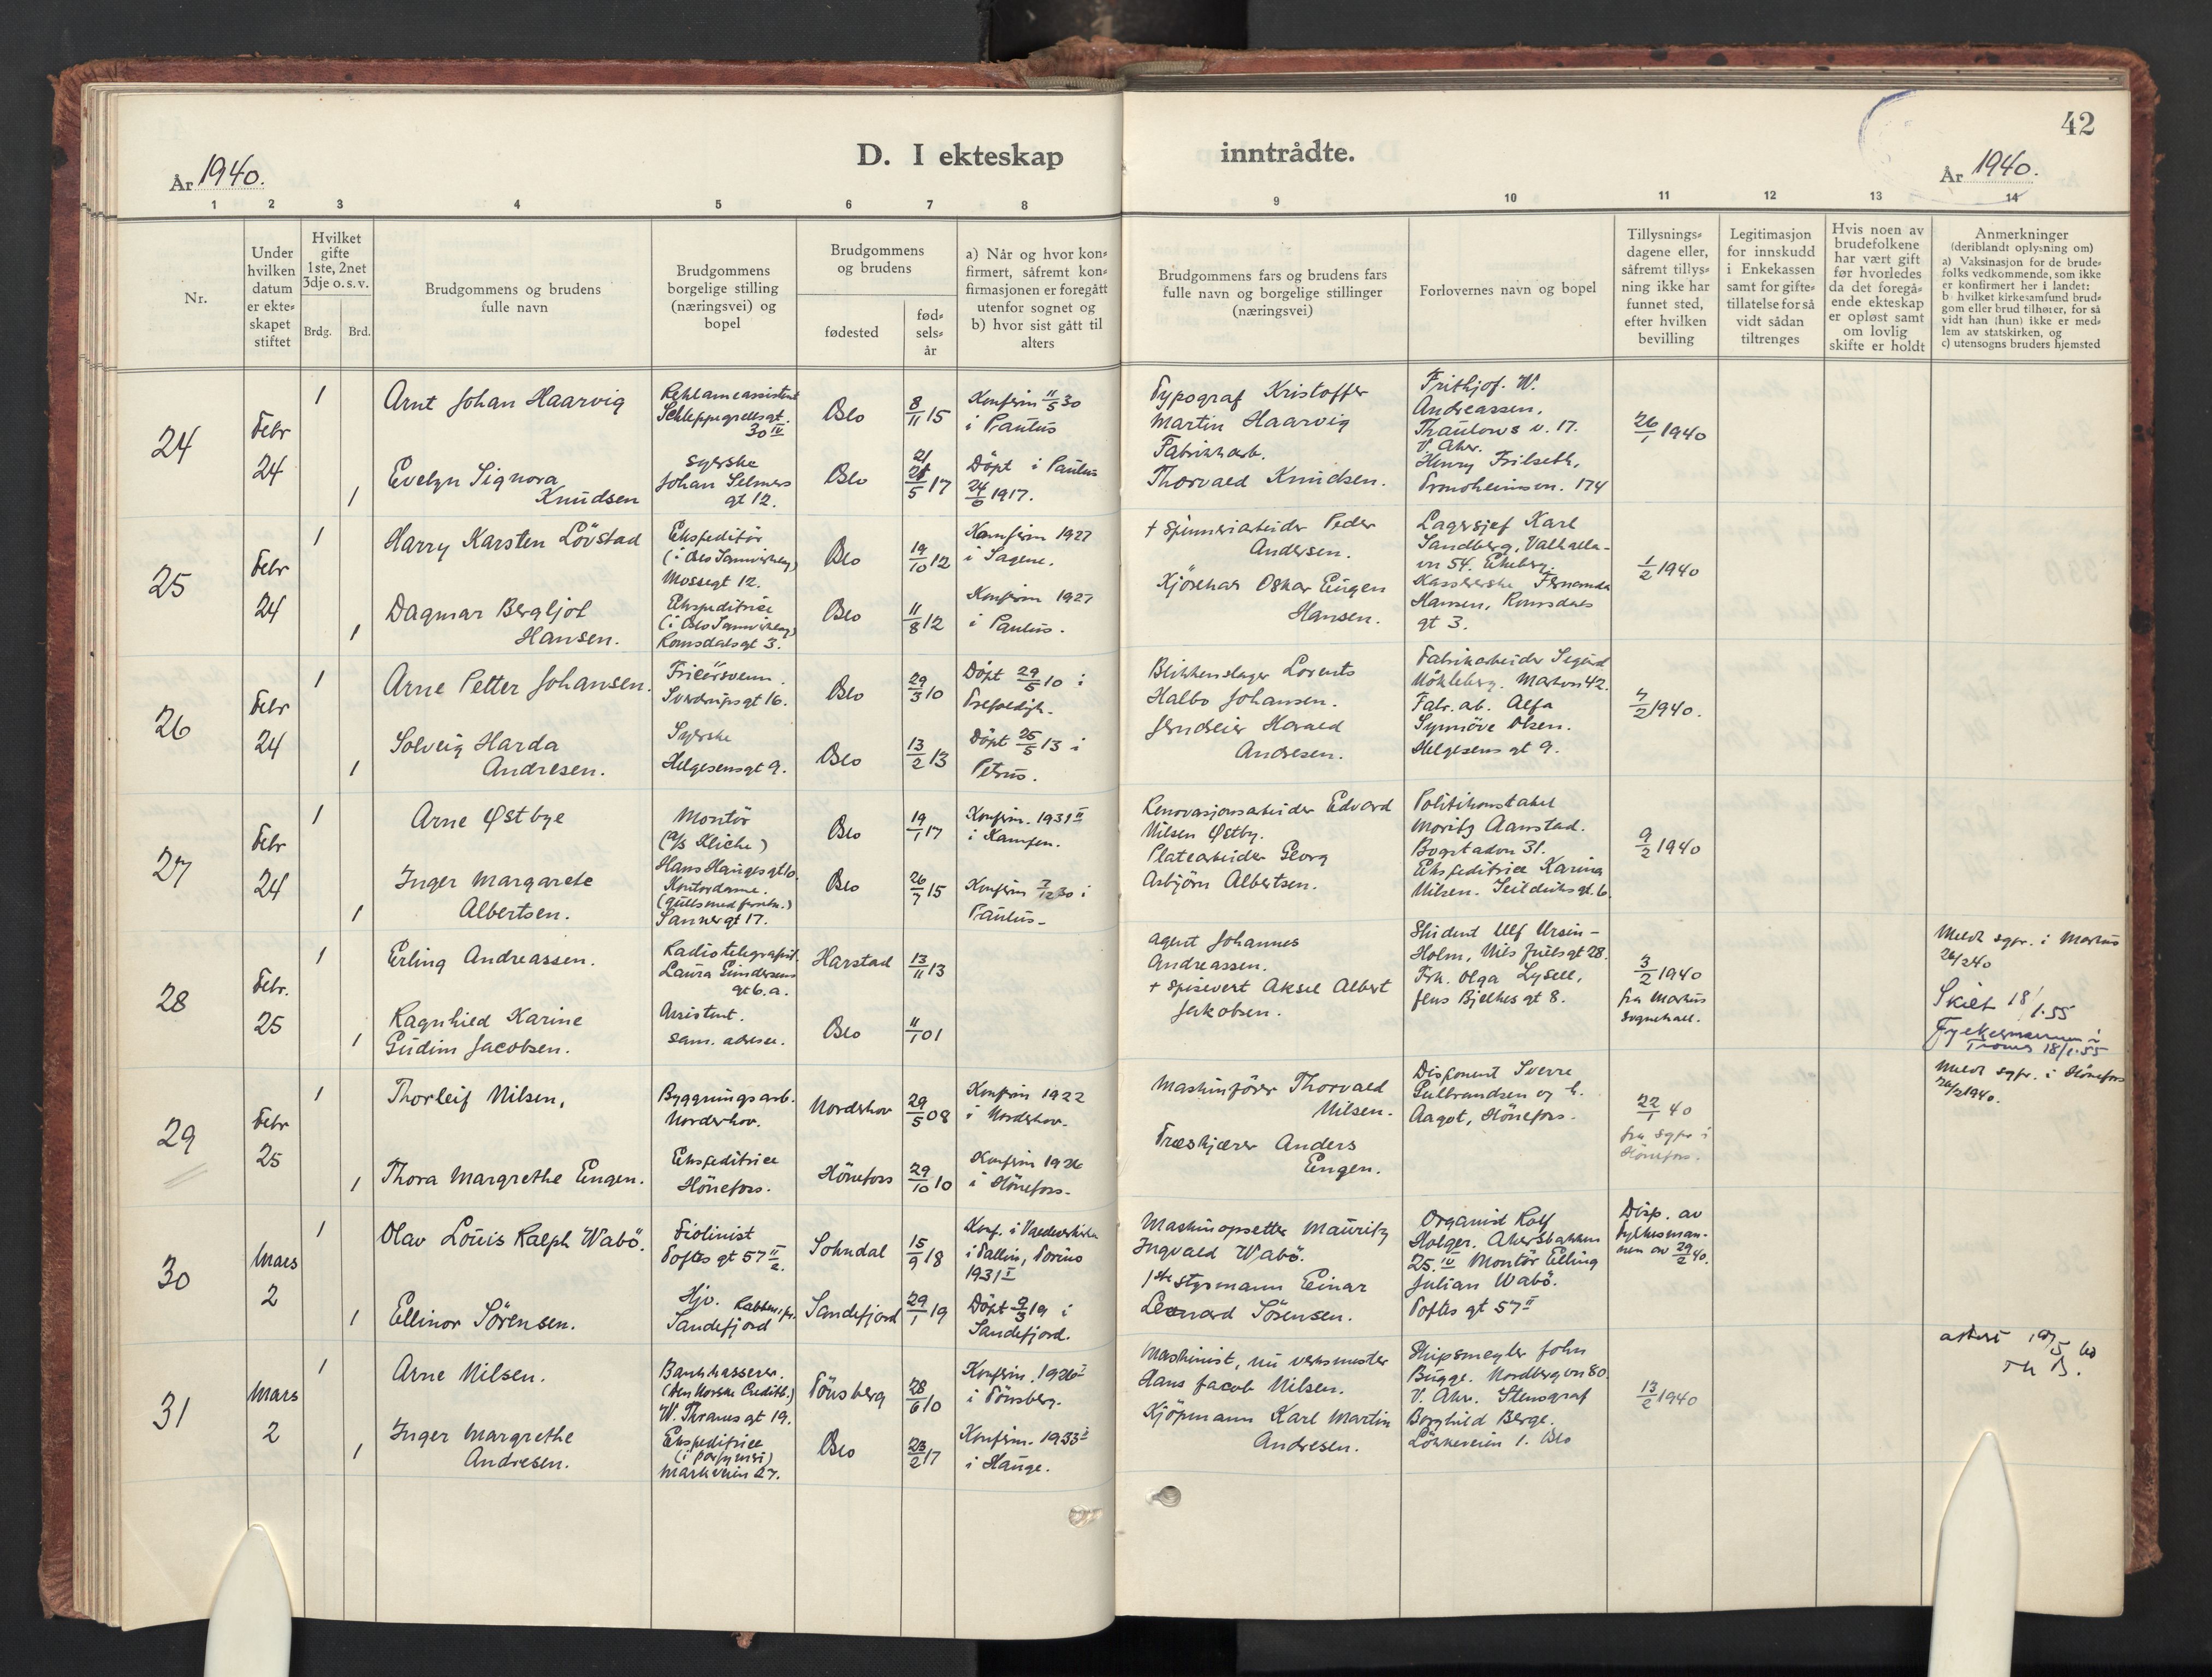 42
D. I ekteskap
inntrådte.
År 1940.
År 1940.
1 2 3 4 5 6 7 8
9 10 11 12 13 14
Nr.
Under
hvilken
datum
er ekte-
skapet
stiftet
Hvilket
gifte
1ste, 2net
3dje o. s. v.
Brdg. Brd.
Brudgommens og brudens
fulle navn
Brudgommens
borgelige stilling
(næringsvei) og
bopel
Brudgommens
og brudens
fødested
fød-
sels-
år
a) Når og hvor kon-
firmert, såfremt kon-
firmasjonen er foregått
utenfor sognet og
b) hvor sist gått til
alters
Brudgommens fars og brudens fars
fulle navn og borgelige stillinger
(næringsvei)
Forlovernes navn og bopel
Tillysnings-
dagene eller,
såfremt tillys-
ning ikke har
funnet sted,
efter hvilken
bevilling
Legitimasjon
for innskudd
i Enkekassen
samt for gifte-
tillatelse for så
vidt sådan
tiltrenges
Hvis noen av
brudefolkene
har vært gift
før hvorledes
da det foregå-
ende ekteskap
er opløst samt
om lovlig
skifte er holdt
Anmerkninger
(deriblandt oplysning om)
a) Vaksinasjon for de brude-
folks vedkommende, som ikke
er konfirmert her i landet:
b) hvilket kirkesamfund brud-
gom eller brud tilhører, for så
vidt han (hun) ikke er med-
lem av statskirken, og
c) utensogns bruders hjemsted
24
Febr
24
1
Arnt Johan Haarvig
Reklameassistent
Schleppegrellsgt.
30 IV
Oslo
8/11 15
Konfirm 11/5 30
i Paulus
Typograf Kristoffer
Martin Haarvig
1
Evelyn Signora
Knudsen
Syerske
Johan Selmers
gt 12.
Oslo
21
21/5 17
Döpt i Paulus
1917.
Fabrikkarb.
Thorvald Knudsen.
Frithjof. W.
Andreassen,
Thaulows v. 17.
V. Aker.
Henry Frilseth,
Trondheimsvn. 174
26/1 1940
25
Febr
24
1
Harry Karsten Lövstad
Ekspeditör
(i Oslo Samvirkelag)
Mossegt 12.
Oslo
19/10 12
Konfirm 1927
i Sagene.
+ Spinneriarbeider Peder
Andersen.
1
Dagmar Bergljot
Hansen.
Ekspeditrice
(i Oslo Samvirkelag)
Romsdalsgt 3.
Oslo
11/8 12
Konfirm 1927
i Paulus.
Kjörekar Oskar Eugen
Hansen.
Lagersjef Karl
Sandberg, Valhalla-
vn 54. Ekeberg.
Kassererske Fernanda
Hansen, Romsdals
gt 3.
1/2 1940
26
Febr
24
1
Arne Petter Johansen.
Frisörsvenn.
Sverdrupsgt 16.
Oslo
29/3 10
Döpt 29/5 10 i
Trefoldigh.
Blikkenslager Lorents
Halbo Johansen.
1
Solveig Harda
Andresen.
Syerske
Helgesensgt 9.
Oslo
13/2 13
Döpt 25/5 13 i
Petrus.
Jerndreier Harald
Andresen.
Fabrikarbeider Sigurd
Mökleberg. Markvn 42.
Fabr. ab. Alfa
Synnöve Olsen.
Helgesens gt 9.
7/2 1940.
27
Febr
24
1
Arne Østbye
Montör
(A/S Kliche)
Hans Haugesgt 10.
Oslo
19/1 17
Konfirm. 1931 II
i Kampen.
Renovasjonsarbeider Edvard
Nilsen Østby.
1
Inger Margarete
Albertsen.
Kontordame.
Sannergt 17.
Oslo
26/7 15
Konfirm 7/12 30 i
Paulus-
Platearbeider Georg
Asbjörn Albertsen.
Politikonstabel
Moritz Aanstad.
Bogstadvn 31.
Ekspeditrice Karina
Nilsen. Seilduksgt. 6.
9/2 1940
28
Febr.
25
1
Erling Andreassen.
Radiotelegrafist.
Laura Gundersens
gt 6. a.
Harstad
13/11 13
Agent Johannes
Andreassen.
1
Ragnhild Karine
Gudim Jacobsen.
Assistent.
sam. adresse.
Oslo
11/1 01
+ Spisevert Aksel Albert
Jakobsen.
Student Ulf Ursin-
Holm, Nils Juelsgt 28.
Frk. Olga Lysell,
Jens Bjelkes gt 8.
3/2 1940
fra Markus
sognekall.
Meldt sgpr. i Markus
26/2 40
Skilt 18/1.55
Fylkesmannen i
Troms 18/1.55
29
Febr
25
1
Thorleif Nilsen,
Byggningsarb.
Norderhov.
Norderhov
29/5 08
Konfirm 1922
i Norderhov.
Maskinförer Thorvald
Nilsen.
1
Thora Margrethe Engen.
Ekspeditrice
Hönefoss.
Hönefoss
29/10 10
Konfirm 1926
i Hönefoss.
Træskjærer Anders
Engen.
Disponent Sverre
Gulbrandsen og h.
Aagot, Hönefoss.
22/1 40
fra sgpr i
Hönefoss.
Meldt sgpr. i Hönefoss
26/2 1940.
30
Mars
2
1
Olav Louis Ralph Wabö.
Fiolinist
Toftes gt 57 II
Sohndal
15/9 18
1931 I
Maskinopsetter Mauritz
Ingvald Wabö.
1
Ellinor Sörensen.
Hjv.
Sandefjord
Sandefjord
29/1 19
Döpt 9/3 19 i
Sandefjord.
1ste Styrmann Einar
Leonard Sörensen.
Organist Rolf
Holger. Akersbakken
25. IV Montör Elling
Julian Wabö.
Toftes gt 57 II
Disp. av
fylkesman-
nen av 29/2 40.
31
Mars
2
1
Arne Nilsen.
Bankkasserer.
(Den Norske Creditb.)
W. Thranes gt 19.
Tönsberg
28/6 10
Konfirm. 1926 I
i Tönsberg.
Maskinist, nu verksmester
Hans Jacob Nilsen.
1
Inger Margrethe
Andresen.
Ekspeditrice
(i parfymeri)
Markveien 27.
Oslo
23/2 17
Konfirm. 1933 I
i Hauge.
Kjöpmann Karl Martin
Andresen.
Skipsmegler John
Bugge. Nordbergvn 80.
V. Aker. Stenograf
Borghild Berge.
Lökkeveien 1. Oslo
13/2 1940